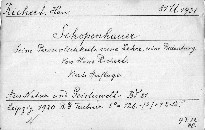 Richert, Hans
Schopenhauer
Seine Persönlichkeit, seine Lehre, seine Bedeutung
Von Hans Richert.
Auflage
Aus Natur und Geisteswelt. Bd 81
Leipzig, 1920 B. G. Teubner. 8°